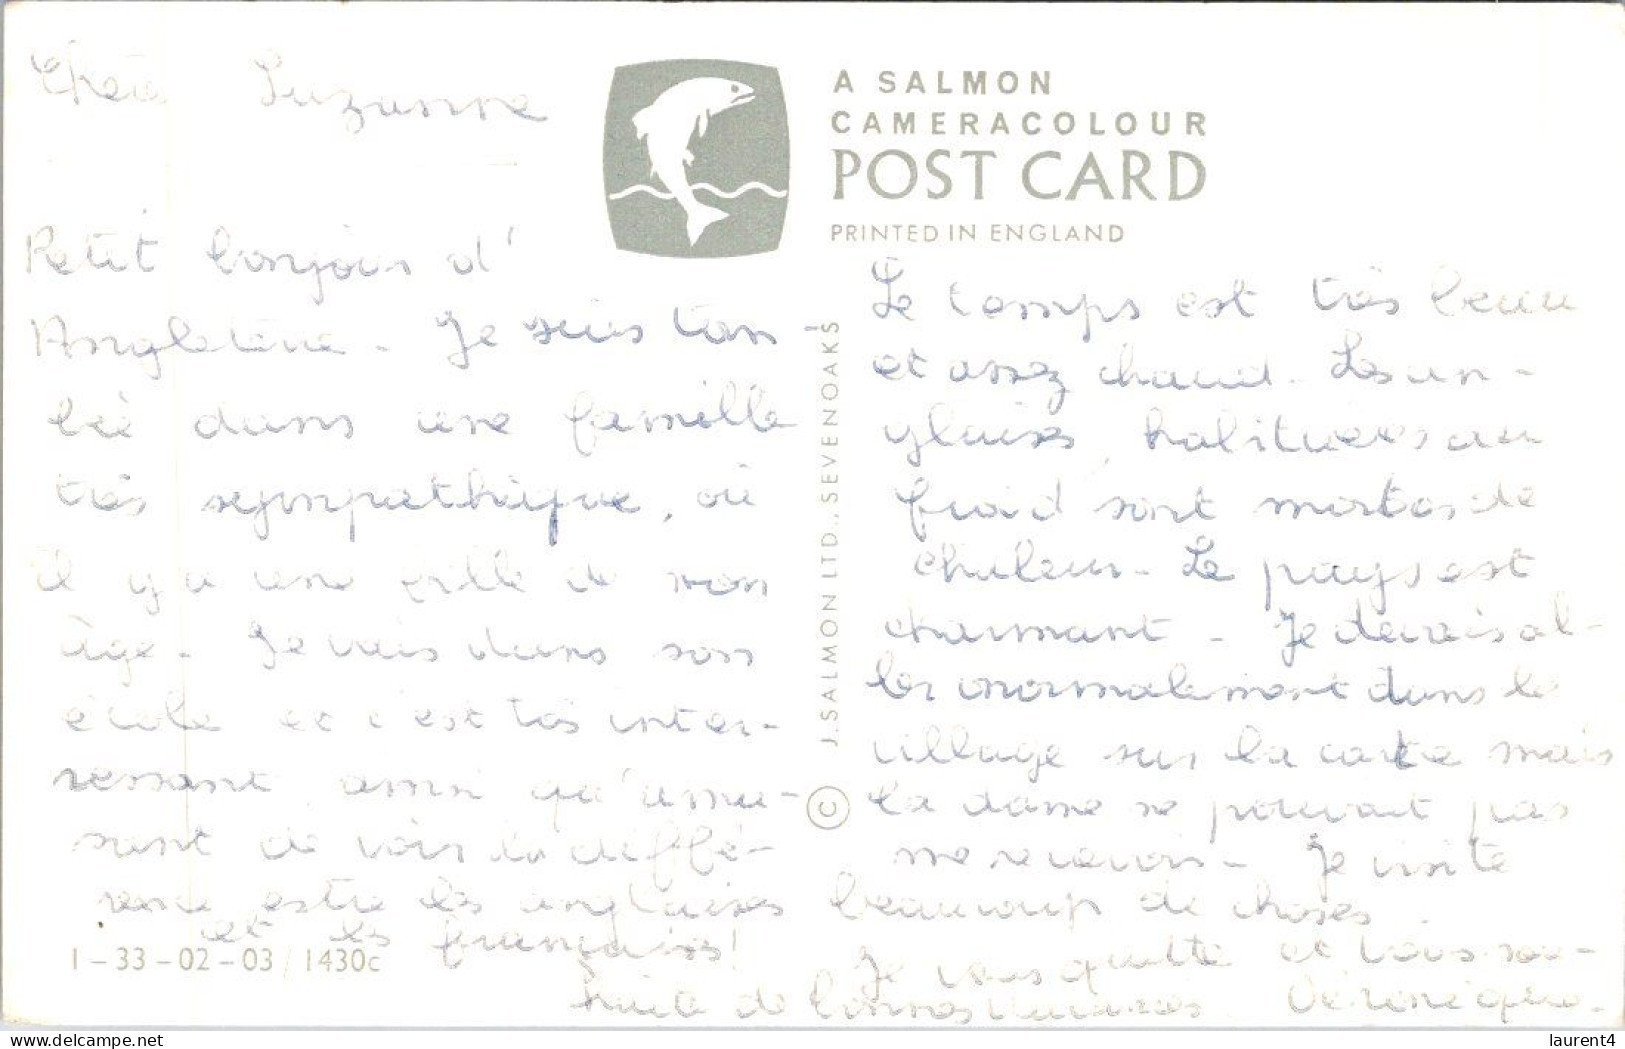 Chère Suzanne
Petit bonjour d'
Angleterre. Je suis tom
bée dans une famille
très sympathique, où
il y a une fille de mon
âge. Je vais dans son
école et c'est très inter-
ressant ainsi qu'amu-
sant de voir la diffé-
rence entre les anglaises
et les français!
A SALMON
CAMERACOLOUR
POST CARD
PRINTED IN ENGLAND
© J. SALMON LTD., SEVENOAKS
Le temps est très beau
et assez chaud. Les an-
glaises, habituées au
froid sont mortes de
chaleur. Le pays est
charmant. Je devais al-
ler normalement dans le
village sur la carte mais
la dame ne pouvait pas
me recevoir. Je visite
beaucoup de choses.
Je vous quitte et vous sou-
haite de bonnes vacances Véronique.
1-33-02-03/1430c
laurent4